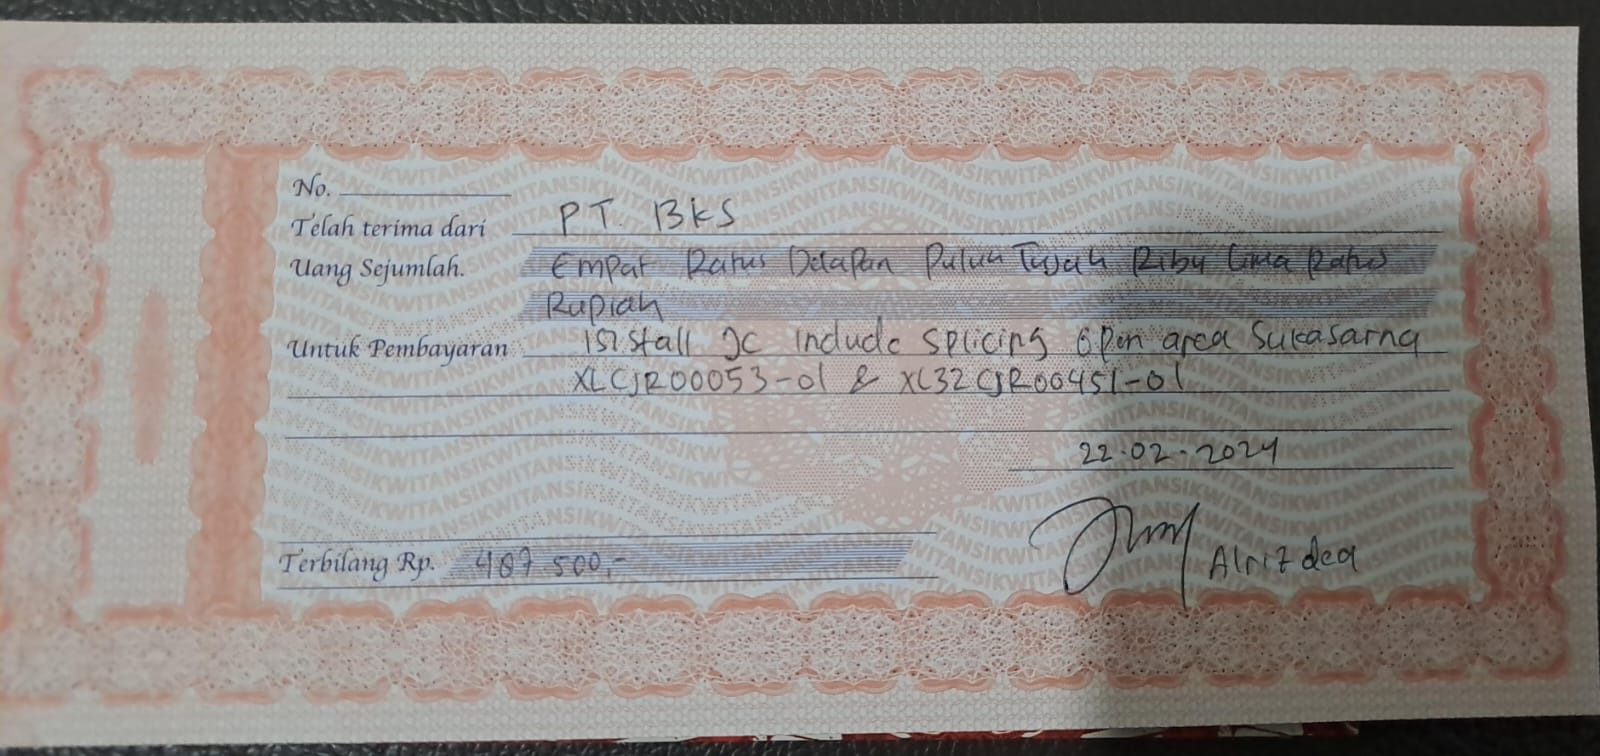 No.
Telah terima dari PT. BKS
Uang Sejumlah. Empat Ratus Delapan Puluh Tujuh Ribu Lima Ratus
Rupiah
Untuk Pembayaran Install JC Include Splicing Open area Sukasarna
XLCJR00053-01 & XL32CJR00451-01
22-02-2024
Terbilang Rp. 487.500,-
Alrizdea